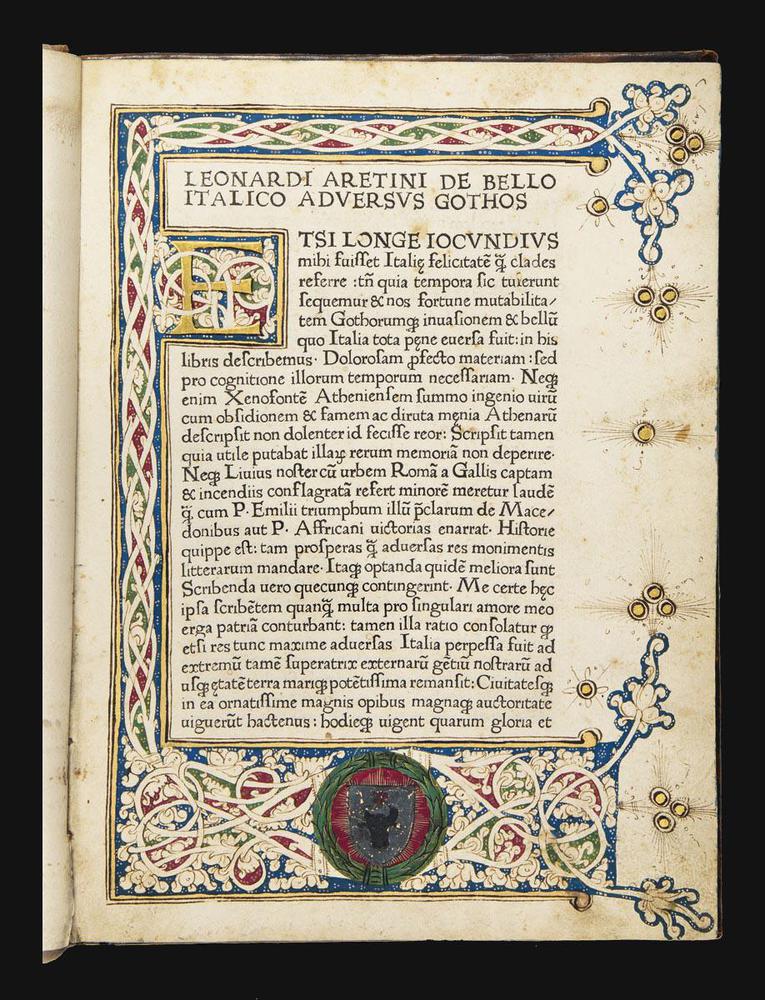 LEONARDI ARETINI DE BELLO
ITALICO ADVERSVS GOTHOS
ETSI LONGE IOCVNDIVS
mihi fuisset Italię felicitatē q̃ clades
referre : tñ quia tempora sic tulerunt
sequemur & nos fortune mutabilita/
tem Gothorumqꝫ inuasionem & bellū
quo Italia tota pęne euersa fuit: in his
libris describemus· Dolorosam ꝓfecto materiam : sed
pro cognitione illorum temporum necessariam· Neqꝫ
enim Xenofontē Atheniensem summo ingenio uirū
cum obsidionem & famem ac diruta męnia Athenarū
descripsit non dolenter id fecisse reor: Scripsit tamen
quia utile putabat illaꝝ rerum memoriā non deperire·
Neqꝫ Liuius noster cū urbem Romā a Gallis captam
& incendiis conflagratā refert minorē meretur laudē
q̃. cum P· Emilii triumphum illū p̄clarum de Mace/
donibus aut P· Affricani uictorias enarrat· Historie
quippe est: tam prosperas q̃ aduersas res monimentis
litterarum mandare· Itaqꝫ optanda quidē meliora sunt
Scribenda uero quecunqꝫ contingerint· Me certe hęc
ipsa scribētem quanq̃ multa pro singulari amore meo
erga patriā conturbant: tamen illa ratio consolatur ꝙ
etsi res tunc maxime aduersas Italia perpessa fuit ad
extremū tamē superatrix externarū gētiū nostrarū ad
usqꝫ ętatē terra mariqꝫ potētissima remansit: Ciuitatesqꝫ
in ea ornatissime magnis opibus magnaqꝫ auctoritate
uiguerūt hactenus : hodieqꝫ uigent quarum gloria et